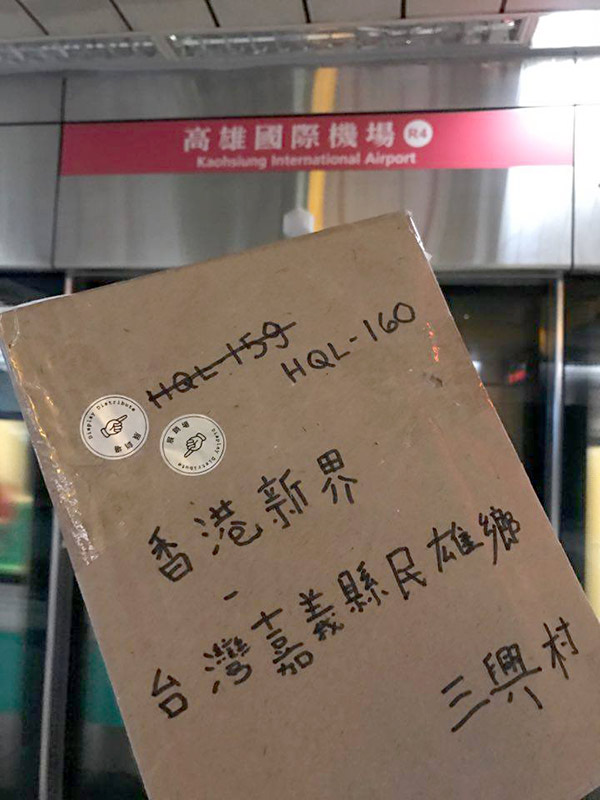 高雄國際機場 R4
Kaohsiung International Airport
HQL-159
HQL-160
Display Distribute
Display Distribute
香港新界
-
台灣嘉義縣民雄鄉
三興村